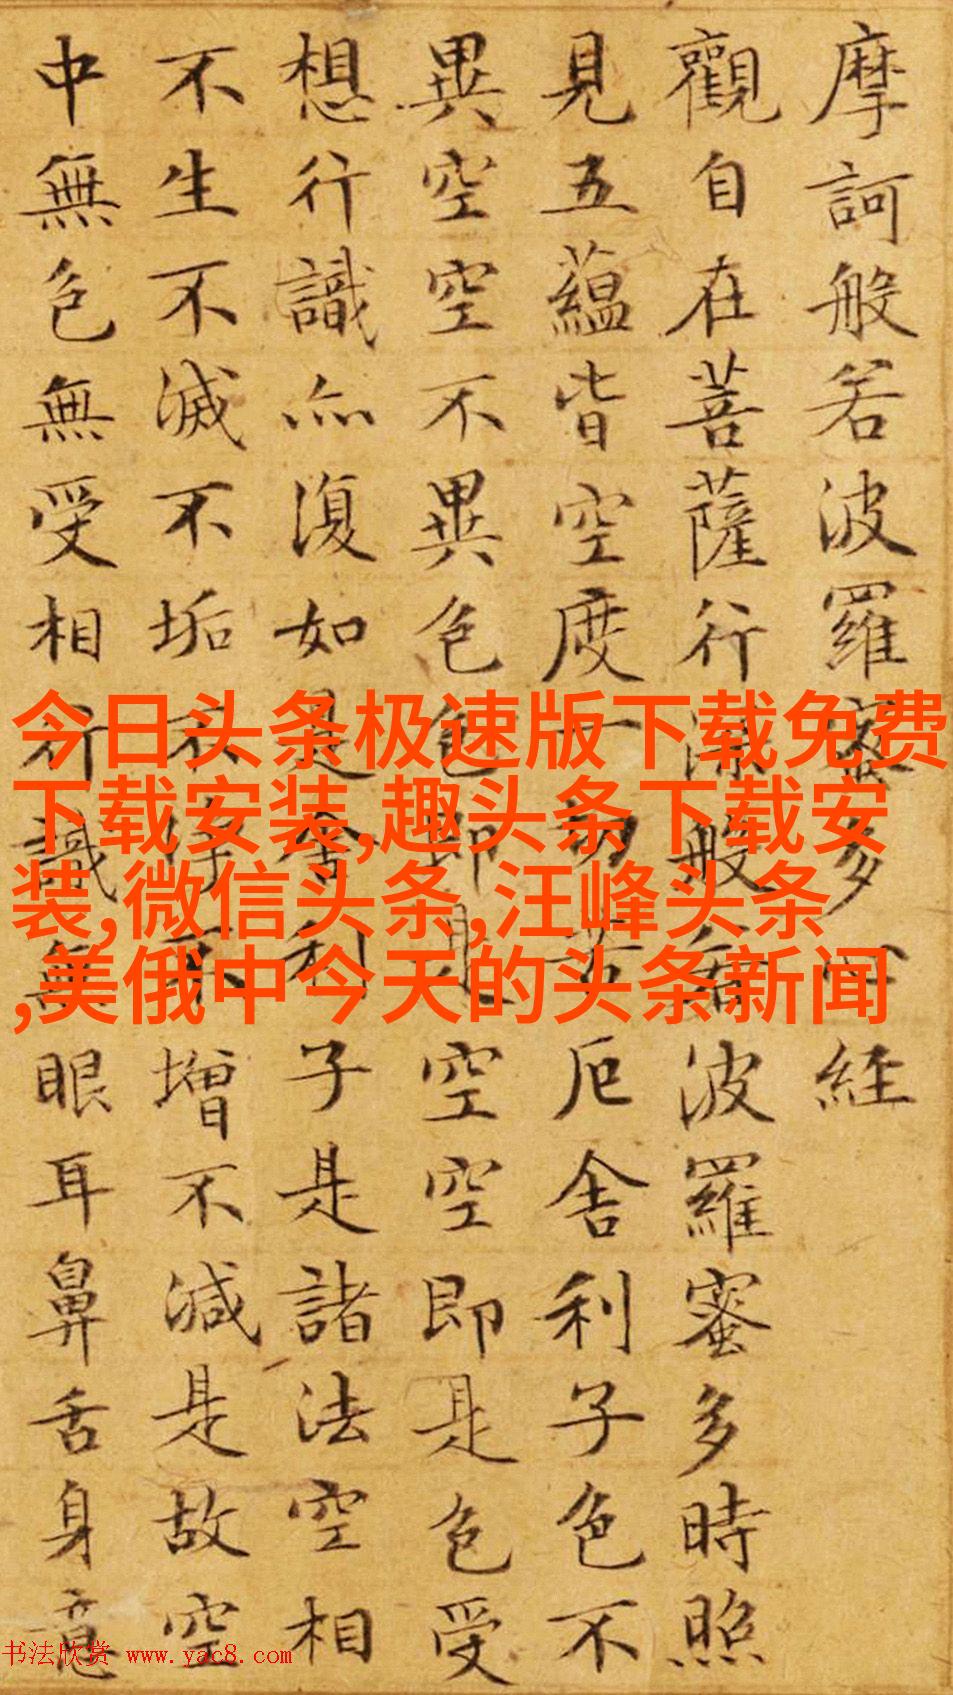 摩訶般若波羅蜜多心經
觀自在菩薩行深般若波羅蜜多時照
見五蘊皆空度一切苦厄舍利子色不
異空空不異色色即是空空即是色受
想行識亦復如是舍利子是諸法空相
不生不滅不垢不淨不增不減是故空
中無色無受相行識無眼耳鼻舌身意
今日头条极速版下载免费
下载安装,趣头条下载安
装,微信头条,汪峰头条
,美俄中今天的头条新闻
书法欣赏 www.yac8.com